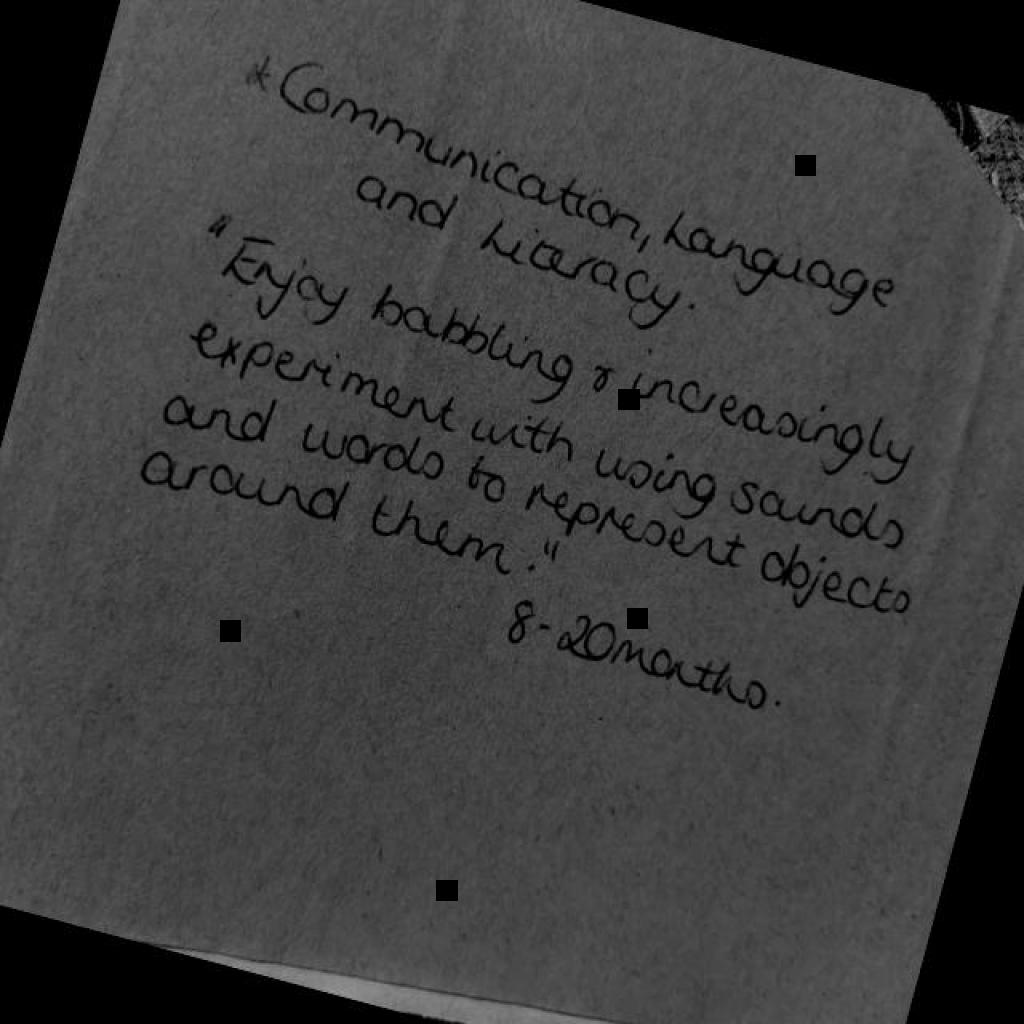 * Communication, Language
and Literacy.
"Enjoy babbling & increasingly
experiment with using sounds
and words to represent objects
around them."
8-20months.